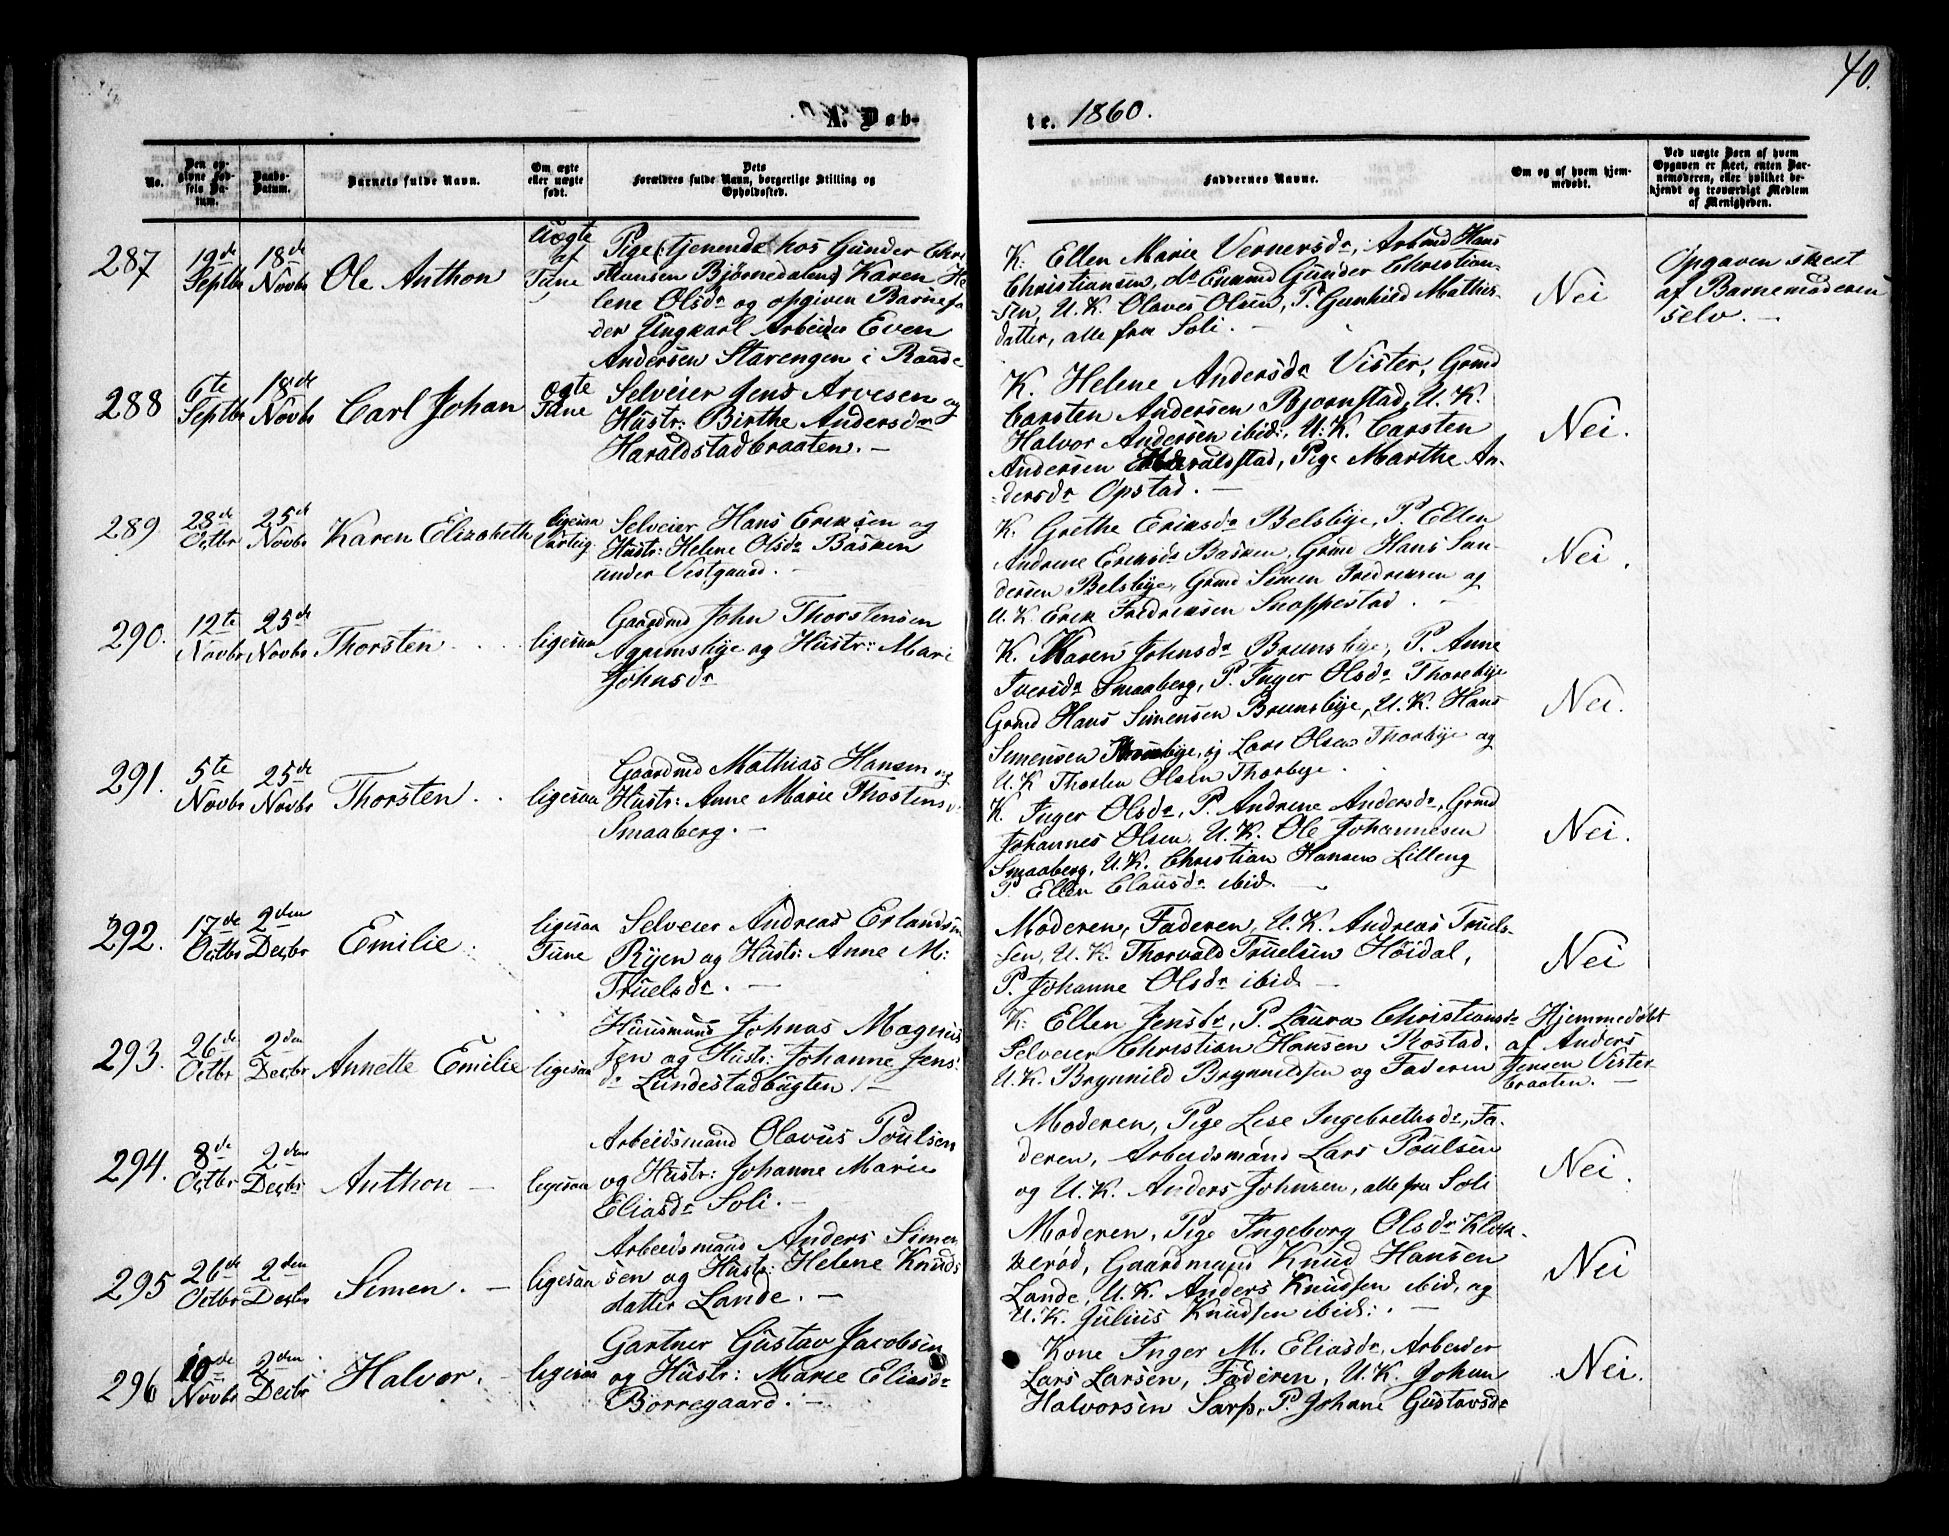 40.
A. Døb-
te. 1860.
No.
Den op-
givne Fød-
sels Da-
tum.
Daabs-
Datum.
Barnets fulde Navn.
Om ægte
eller uægte
født.
Dets
Forældres fulde Navn, borgerlige Stilling og
Opholdssted.
Faddernes Navne.
Om og af hvem hjem-
medøbt.
Ved uægte Børn af hvem
Opgaven er skeet, enten Bar-
nemoderen, eller hvilket be-
kjendt og troværdigt Medlem
af Menigheden.
287
19de
Septbr
18de
Novbr
Ole Anthon
Uægte
af
Tune
Pige (tjenende hos Gunder Chri
stiansen Bjørnedalen) Karen He
lene Olsdr og opgiven Barnefa
der Ungkarl Arbeider Even
Andersen Starengen i Raade
K. Ellen Marie Vernersdr, Arbmd Hans
Christiansen, do Enkemd Gunder Christian-
sen, U. K. Olaves Olsen, P. Gunhild Mathis-
datter, alle fra Soli. —
Nei
Opgaven skeet
af Barnemoderen
selv. —
288
6te
Septbr
18de
Novbr
Carl Johan
ægte
Tune
Selveier Jens Arvesen og
Hustr: Birthe Andersdr
Haraldstadbraaten. —
K. Helene Andersdr Vister, Grmd
Carsten Andersen Bjornstad, U. K.
Halvor Andersen ibid:, U. K. Carsten
Andersen Haraldstad, Pige Marthe An-
dersdr Opstad. —
Nei.
289.
28de
Octbr
25de
Novbr
Karen Elizabeth
ligesaa
Varteig.
Selveier Hans Eriksen og
Hustr: Helene Olsdr Basken
under Vestgaard. —
K. Grethe Eriksdr Belsbye, P. Ellen
Andrene Eriksdr Basken, Grmd Hans San-
dersen Belsbye, Grmd Simen Fredriksen og
U. K. Erik Fredriksen Snoppestad. —
Nei.
290.
12te
Novbr
25de
Novbr
Thorsten
ligesaa
Gaardmd John Thorstensen
Agrimsbye og Hustr: Mari
Johnsdr
K. Karen Johnsdr Brunsbye, P. Anne
Iversdr Smaaberg, P. Inger Olsdr Thorebye
Grmd Hans Simensen Brunsbye, U. K. Hans
Simensen Brunsbye, og Lars Olsen Thorbye og
U. K Thorsten Olsen Thorbye.
Nei.
291.
5te
Novbr
25de
Novbr
Thorsten
ligesaa
Gaardmd Mathias Hansen og
Hustr: Anne Marie Thostensd
Smaaberg. —
K. Inger Olsdr, P. Andrene Andersdr, Grmd
Johannes Olsen, U. K. Ole Johannesen
Smaaberg, U. K. Christian Hansen Lilleng
P. Ellen Clausdr ibid. —
Nei.
292.
17de
Octbr
2den
Decbr
Emilie
ligesaa
Tune
Selveier Andreas Erlandsen
Ryen og Hustr: Anne M:
Truelsdr. —
Moderen, Faderen, U. K. Andreas Truel-
sen, U. K. Thorvald Truelsen Høidal,
P. Johanne Olsdr ibid. —
Nei
293.
26de
Octbr
2den
Decbr
Annette Emilie
ligesaa
Huusmand Johnas Magnus
sen og Hustr: Johanne Jens-
dr Lundestadbugten. —
K: Ellen Jensdr, P. Laura Christiansdr
Selveier Christian Hansen Rostad.
U. K. Brynnild Brynnildsen og Faderen
Hjemmedøbt
af Anders
Jensen Vister-
braaten. —
294.
8de
Octbr
2den
Decbr
Anthon —
ligesaa
Arbeidsmand Olavus Poulsen
og Hustr: Johanne Marie
Eliasdr Soli. —
Moderen, Pige Lise Ingebrethsdr, Fa-
deren, Arbeidsmand Lars Poulsen
og U. K. Anders Johnsen, alle fra Soli
Nei.
295
26de
Octbr
2den
Decbr
Simen. —
ligesaa
Arbeidsmand Anders Simen
sen og Hustr: Helene Knuds
datter Lande. —
Moderen, Pige Ingeborg Olsdr Klok-
kerød, Gaardmand Knud Hansen
Lande, U. K. Anders Knudsen ibid, og
U. K. Julius Knudsen ibid:. —
Nei
296
Novbr
2den
Decbr
Halvor. —
ligesaa
Gartner Gustav Jacobsen
og Hustr: Marie Eliasdr
Borregaard. —
Kone Inger M. Eliasdr, Arbeider
Lars Larsen, Faderen, U. K. Johan
Halvorsen Sarp, P. Johane Gustavsdr
Nei.